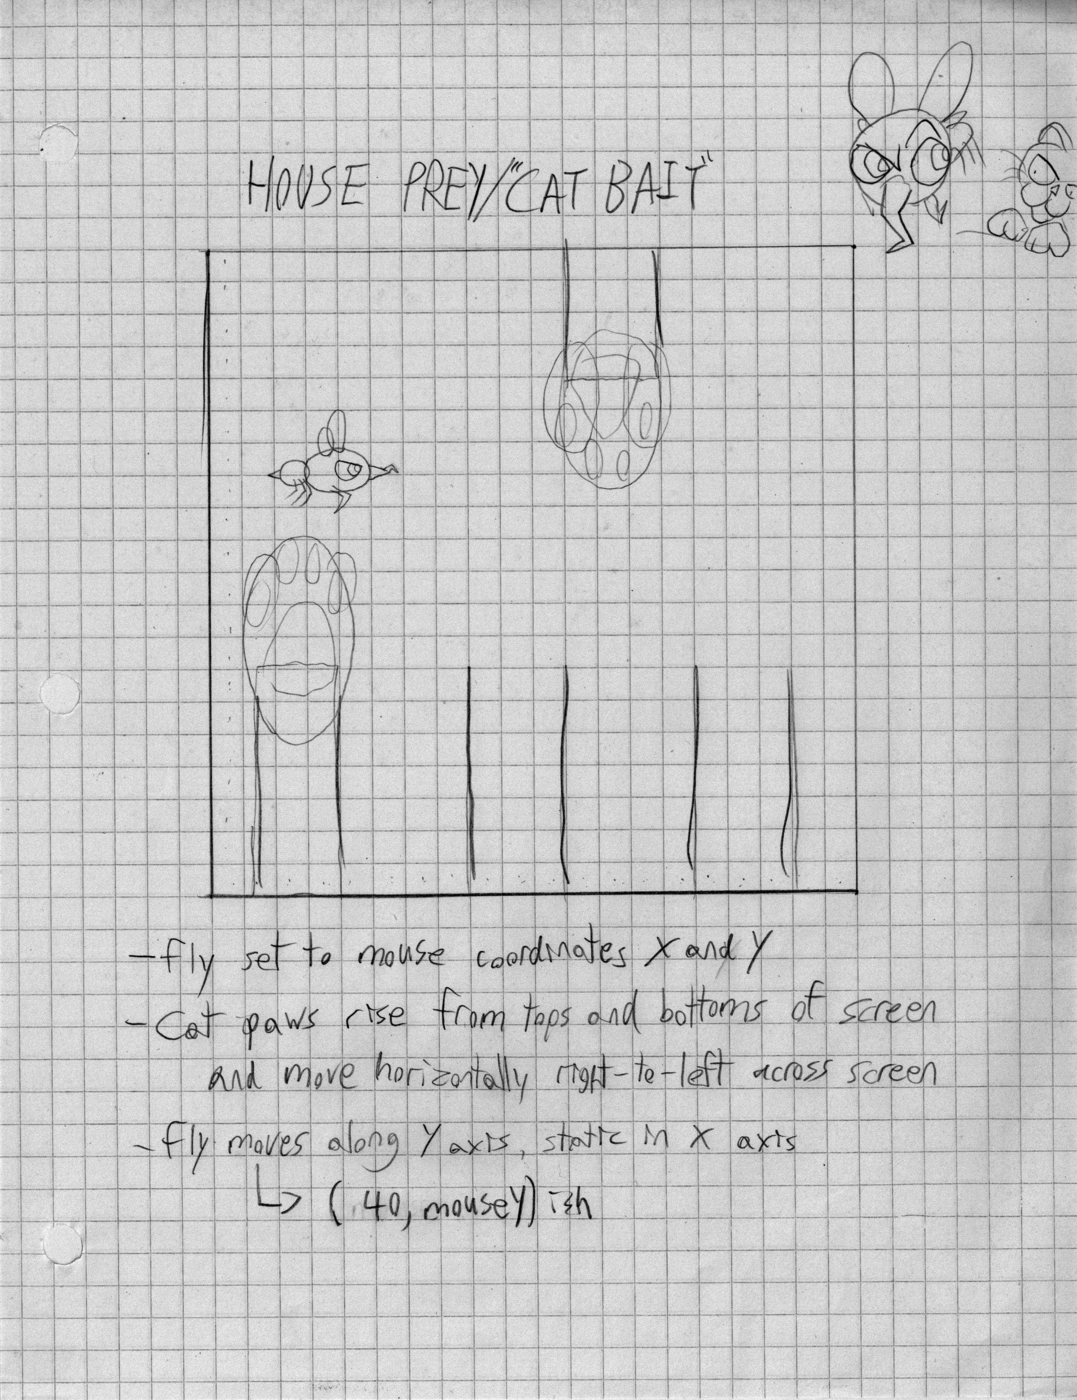 HOUSE PREY/"CAT BAIT"
-fly set to mouse coordinates X and Y
-Cat paws rise from tops and bottoms of screen
and move horizontally right-to-left across screen
-fly moves along Y axis, static in X axis
↳ (40, mouseY) ish